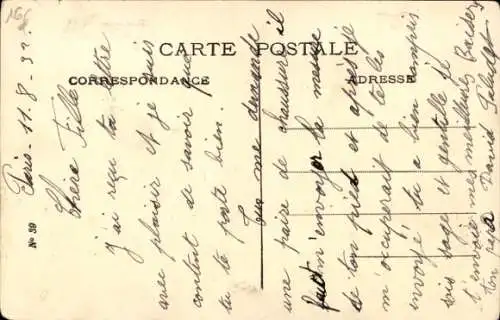 166
CARTE POSTALE
CORRESPONDANCE
ADRESSE
No 39
Paris - 11.8.32.
Chère Fille
J'ai reçu ta lettre
avec plaisir et je suis
content de savoir que
tu te porte bien.
Tu me demande
une paire de chaussure il
faut m'envoyer la mesure
de ton pied et après je
m'occuperait de te les
envoyé, tu a bien compris
sois sage et gentille je
t'envoie mes meilleurs Baiser
ton papa David